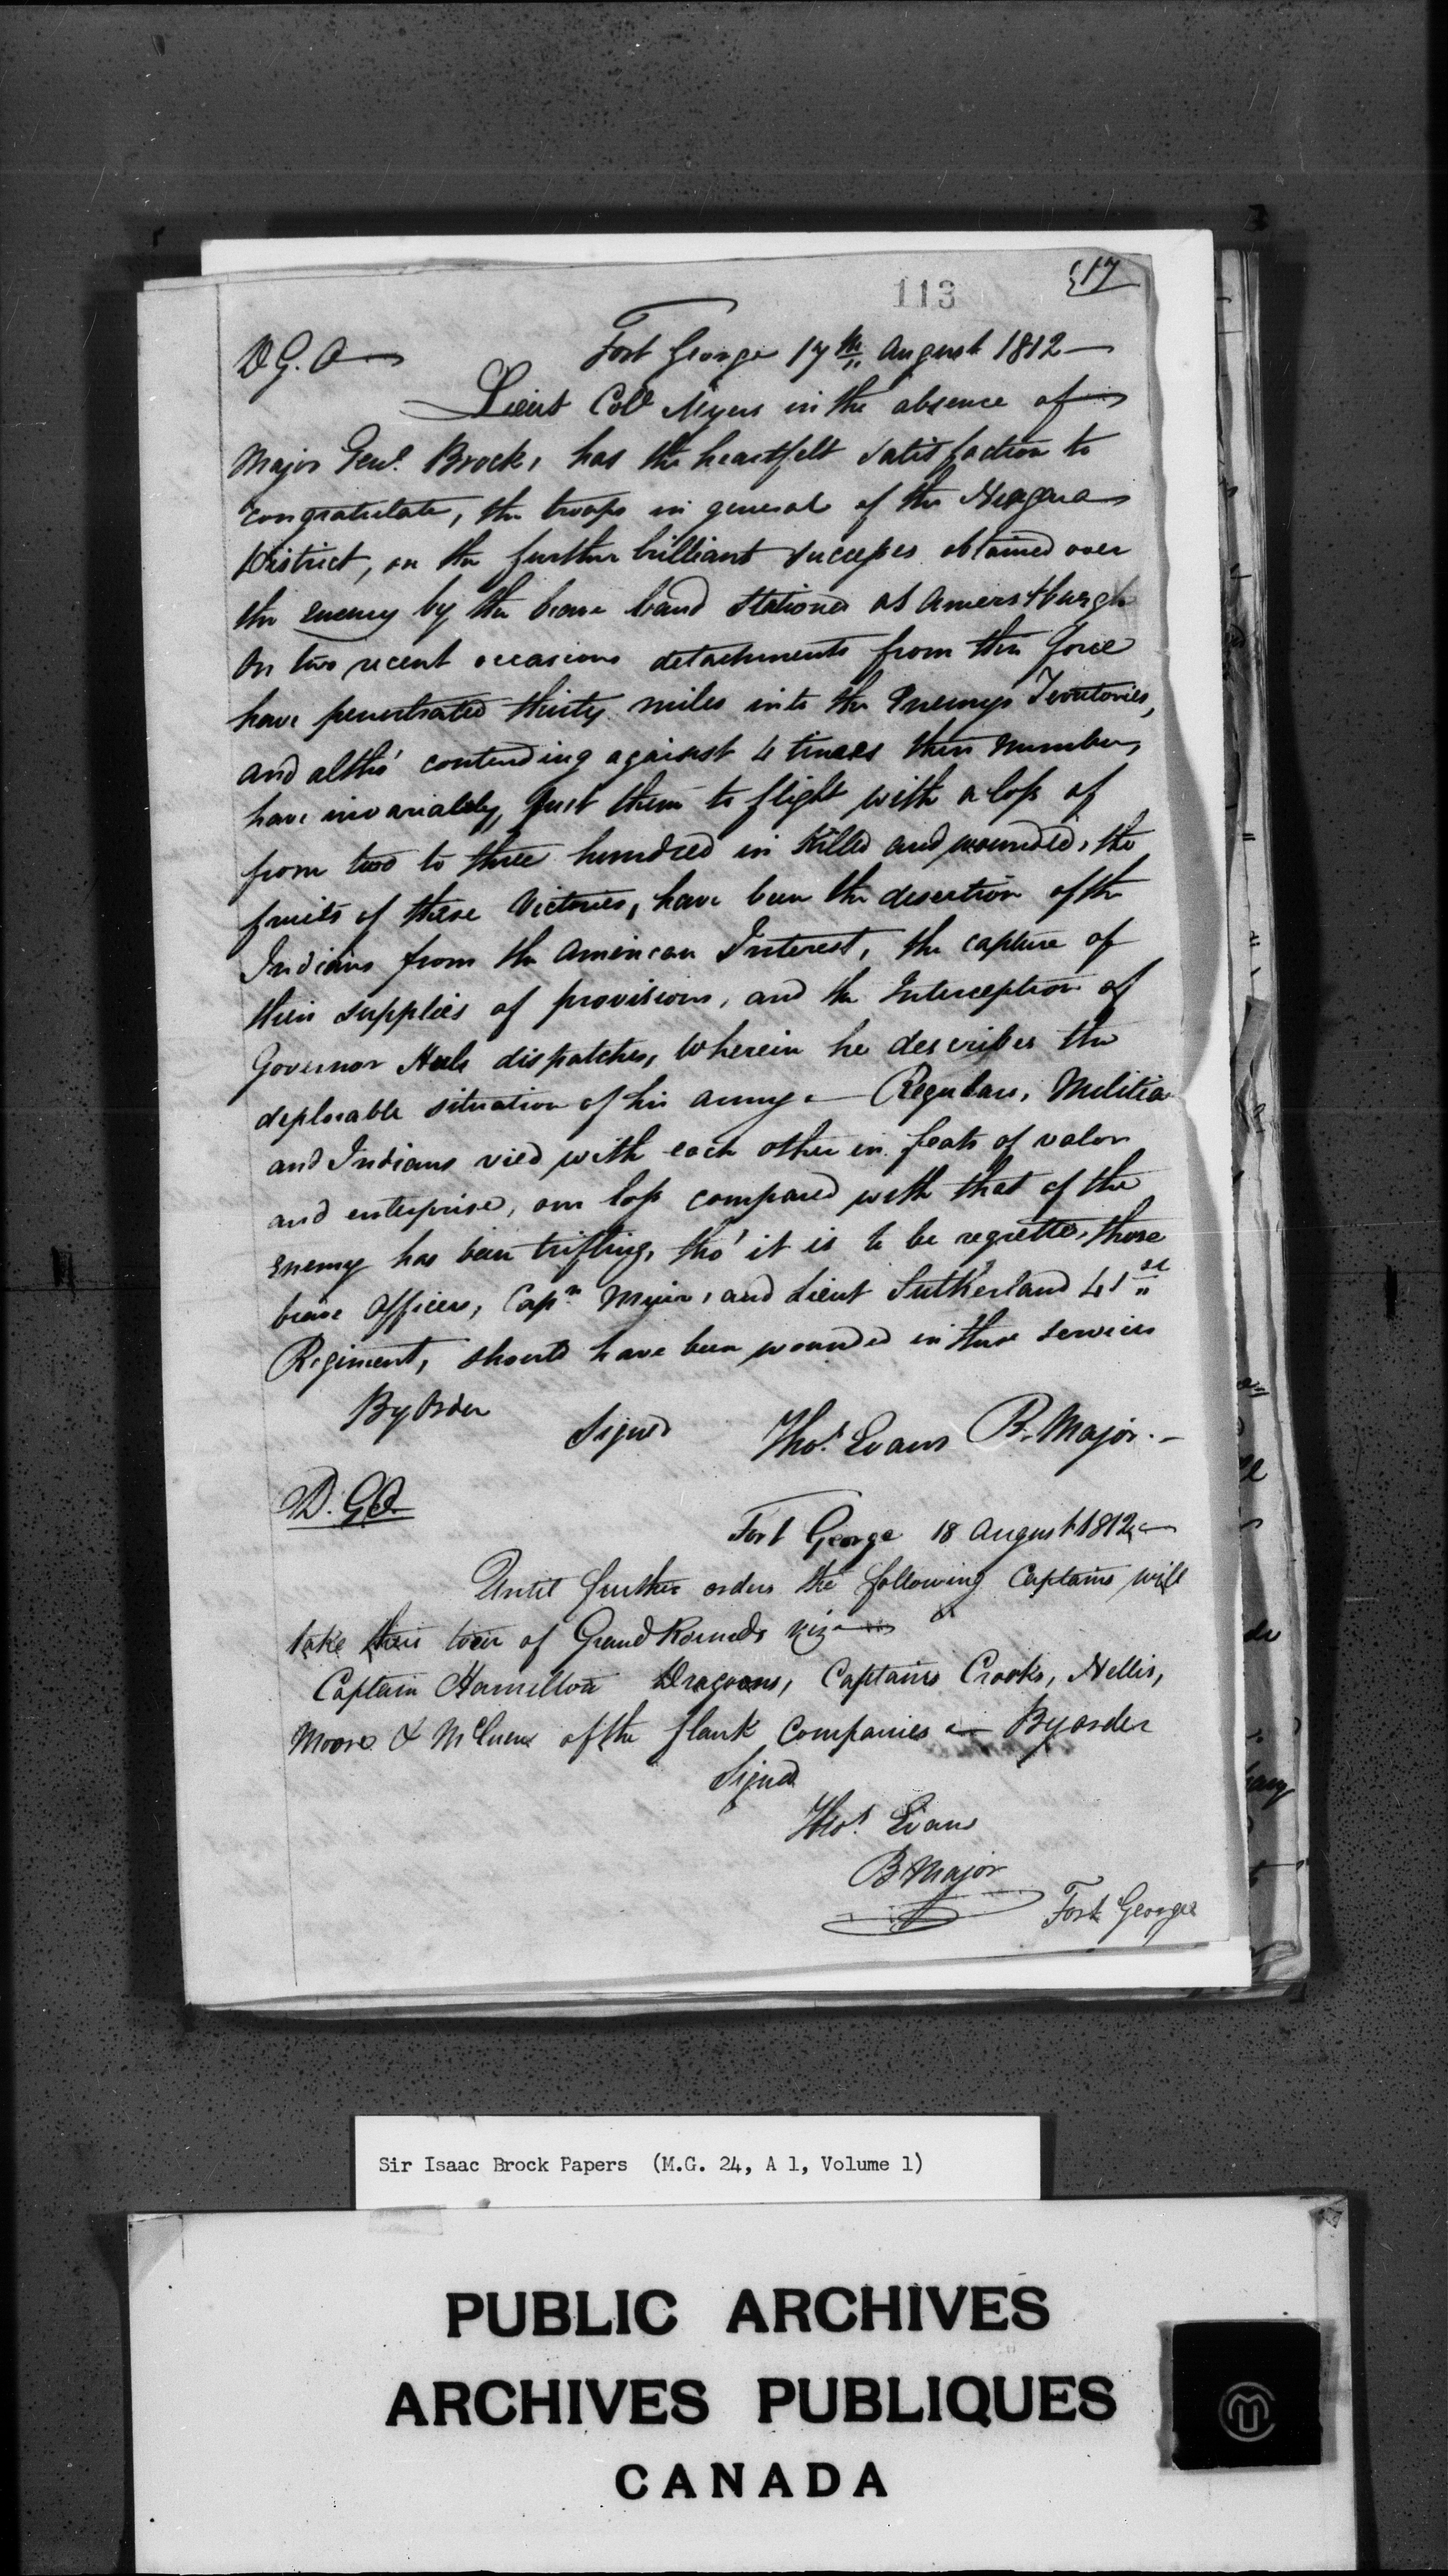 113
17
D.G.O
Fort George 17th August 1812
Lieut Coll Myers in the absence of
Major Genl. Brock, has the heartfelt satisfaction to
congratulate, the troops in general of the Niagara
District, on the further brilliant successes obtained over
the enemy by the brave band stationed at Amerstburgh
On two recent occasions detachments from this force
have penertrated thirty miles into the Enemys Territories,
and altho' contending against 4 times their number,
have invariably, put them to flight with a loss of
from two to three hundred in Killed and wounded, the
fruits of these Victories, have been the desertion of the
Indians from the American Interest, the capture of
their supplies of provisions, and the Interception of
Governor Hulls dispatches, Wherein he describes the
deplorable situation of his army. — Regulars, Militia
and Indians vied with each other in feats of valor
and enterprise, our loss compared with that of the
Enemy has been trifling, tho' it is to be regretted, those
brave Officers, Capn. Muir, and Lieut Sutherland 41st
Regiment, should have been wounded in these services
By Order
Signed
Thos. Evans B. Major. —
D. G.O.
Fort George 18 August 1812
Until further orders the following Captains will
take their tour of Grand Rounds viz
Captain Hamilton Dragoons, Captains Crooks, Nellis,
Moore & McEuen of the flank Companies — By order
Signed
Thos. Evans
B Major
Fort George
Sir Isaac Brock Papers (M.G. 24, A 1, Volume 1)
PUBLIC ARCHIVES
ARCHIVES PUBLIQUES
CANADA